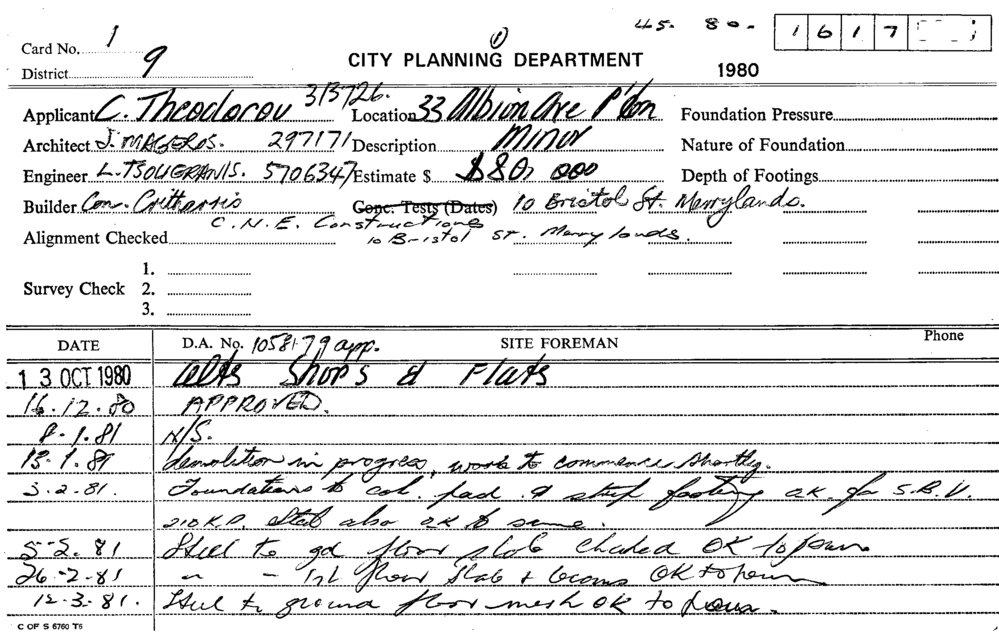 45. 80. 1617
Card No. 1
(1)
CITY PLANNING DEPARTMENT
District 9
1980
Applicant C. Theodorou 313726. Location 33 Albion Ave P'ton Foundation Pressure
Architect J. MAGEROS. 297171 Description Minor Nature of Foundation
Engineer L. TSOUGRANIS. 5706347 Estimate $ $80,000 Depth of Footings
Builder Con. Critharris Conc. Tests (Dates) 10 Bristol St. Merrylands.
C.N.E. Constructions
Alignment Checked 10 Bristol St. Merrylands.
1.
Survey Check 2.
3.
DATE D.A. No. 1058179 app. SITE FOREMAN Phone
13 OCT 1980 Alts Shops & Flats
16.12.80 APPROVED.
8.1.81 N/S.
13.1.81 demolition in progress, work to commence shortly.
3.2.81. Foundations to col. pad & strip footing o.k. for S.B.V.
210 K.P. Steel also o.k to same.
5-2.81 Steel to gd floor slab checked OK to pour
26.-2-81 " - 1st floor slab & beams OK to pour
12-3-81. Steel to ground floor mesh OK to pour.
C OF S 6760 T6